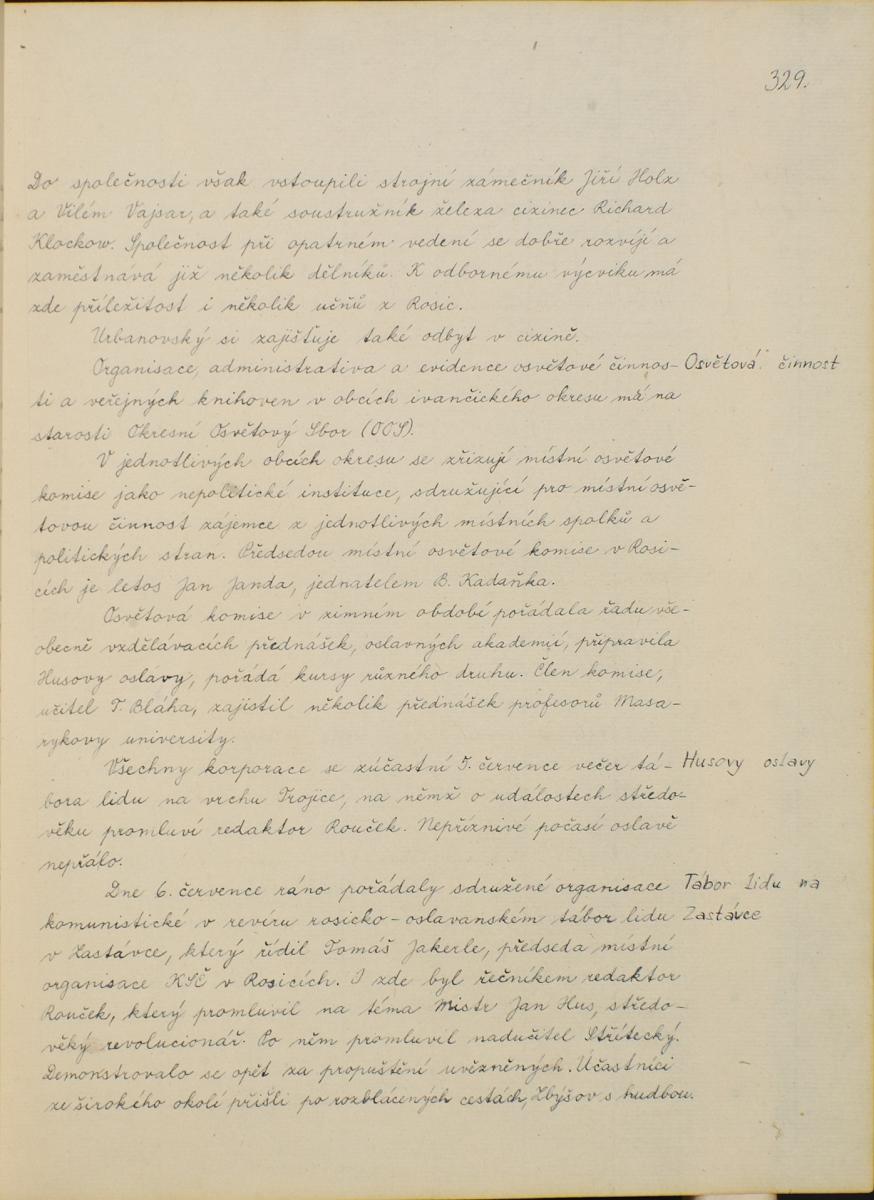 329.
Do společnosti však vstoupili strojní zámečník Jiří Holz
a Vilém Vajsar, a také soustružník železa cizinec Richard
Klockow. Společnost při opatrném vedení se dobře rozvíjí a
zaměstnává již několik dělníků. K odbornému výcviku má
zde příležitost i několik učňů z Rosic.
Urbanovský si zajišťuje také odbyt v cizině.
Organisace, administrativa a evidence osvětové činnos- Osvětová činnost
ti a veřejných knihoven v obcích ivančického okresu má na
starosti Okresní Osvětový Sbor (OOS).
V jednotlivých obcích okresu se zřizují místní osvětové
komise jako nepolitické instituce, sdružující pro místní osvě-
tovou činnost zájemce z jednotlivých místních spolků a
politických stran. Předsedou místní osvětové komise v Rosi-
cích je letos Jan Janda, jednatelem B. Kadaňka.
Osvětová komise v zimním období pořádala řadu vše-
obecně vzdělávacích přednášek, oslavných akademií, připravila
Husovy oslavy, pořádá kursy různého druhu. Člen komise,
učitel T. Bláha, zajistil několik přednášek profesorů Masa-
rykovy university.
Všechny korporace se zúčastní 5. července večer tá- Husovy oslavy
bora lidu na vrchu Trojice, na němž o událostech středo-
věku promluví redaktor Rouček. Nepříznivé počasí oslavě
nepřálo.
Dne 6. července ráno pořádaly sdružené organisace Tábor lidu na
komunistické v revíru rosicko-oslavanském tábor lidu Zastávce
v Zastávce, který řídil Tomáš Jakerle, předseda místní
organisace KSČ v Rosicích. I zde byl řečníkem redaktor
Rouček, který promluvil na téma Mistr Jan Hus, středo-
věký revolucionář. Po něm promluvil nadučitel Střítecký.
Demonstrovalo se opět za propuštění uvězněných. Účastníci
ze širokého okolí přišli po rozblácených cestách, Zbýšov s hudbou.